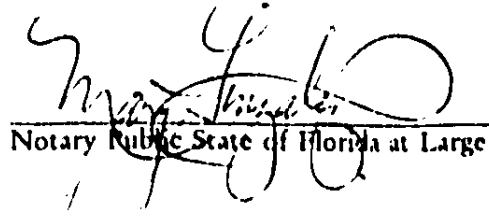 Notary Public State of Florida at Large